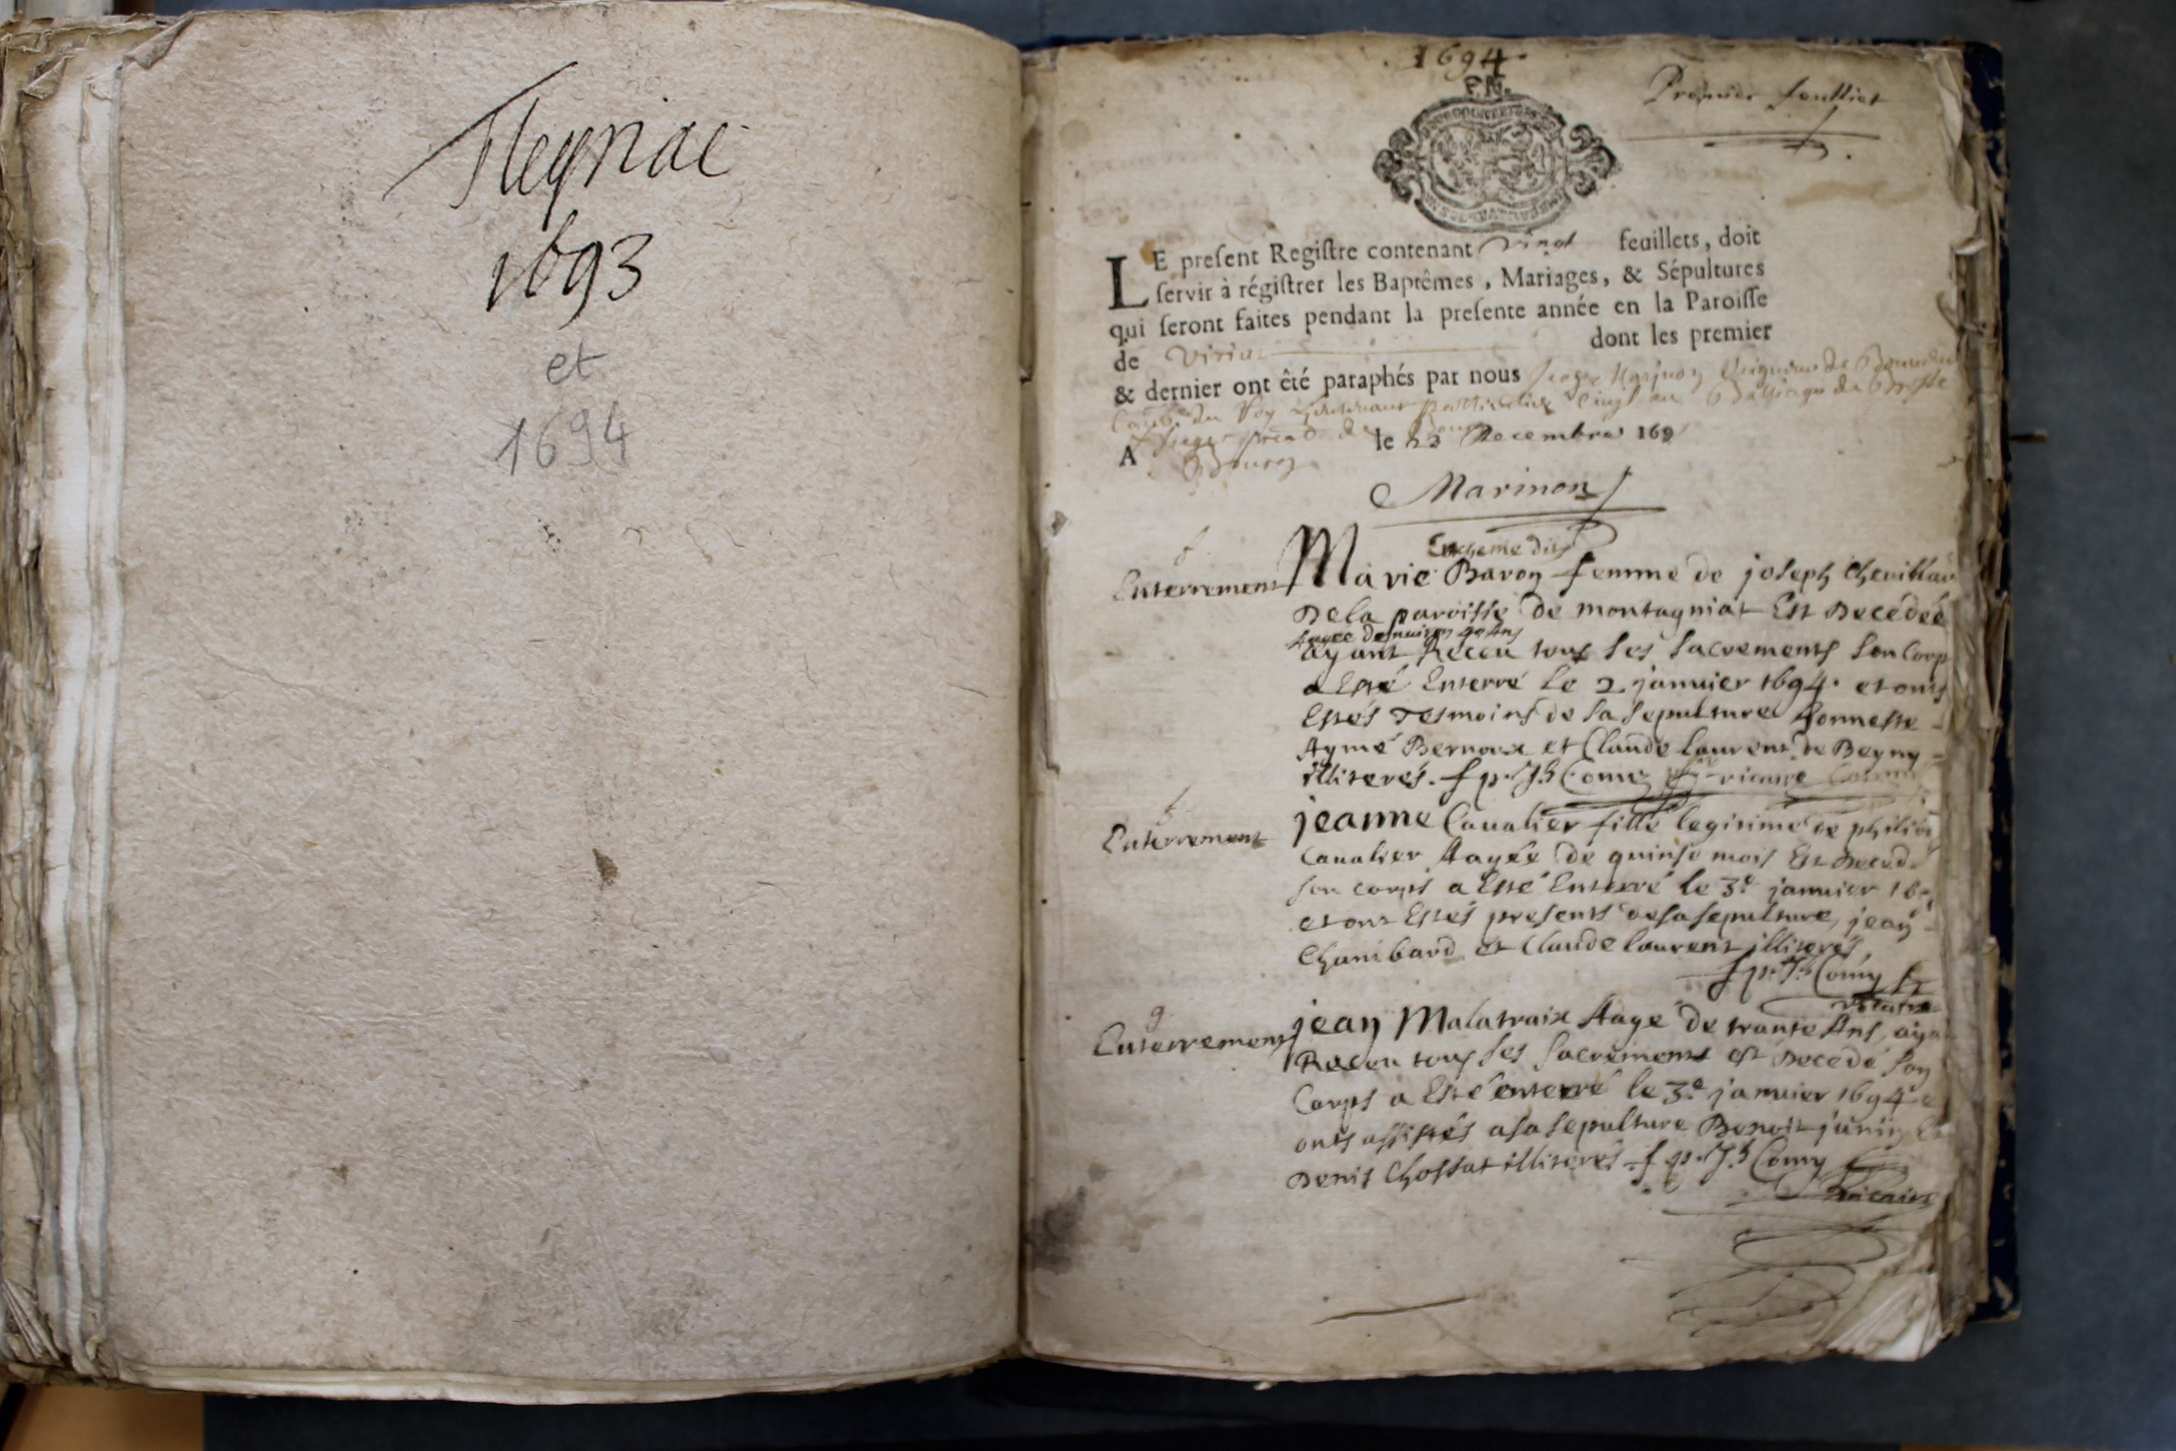 Fleyriac
1693
et
1694
1694
Premier feulliet
LE preſent Regiſtre contenant vingt feuillets, doit
ſervir à régiſtrer les Baptêmes, Mariages, & Sépultures
qui ſeront faites pendant la preſente année en la Paroiſſe
de Viriat dont les premier
& dernier ont été paraphés par nous
A Bourg le 23 Decembre 169
Marinon
Enterrement
Marie Baron femme de joseph Chevillar
De la paroisse de montagniat Est Decédée
ayant Receu tous ses sacrements son Corp
a Esté Enterré le 2 janvier 1694. et onts
Estés Tesmoins de sa sepulture honneste
Aymé Bernoux et Claude laurent de Beyny
illiterés. f p. Jh Comy vicaire
Enterrement
jeanne Cavalier fille legitime de philib
Cavalier Aagée de quinse mois Est Deced
son corps a Esté Enterré le 3e janvier 16
et ont Estés presents de sa sepulture jean
Chanibard et Claude laurent illiterés
f p. Jh Comy
vicaire
Enterrement
jean Malatraix Aagé De trante Ans, aya
Receu tous ses sacrements est Decedé son
Corps a Esté enterré le 3e janvier 1694 e
onts assistés a sa sepulture Benoit junin Et
Denis Chossat illiterés f p. Jh Comy
vicaire